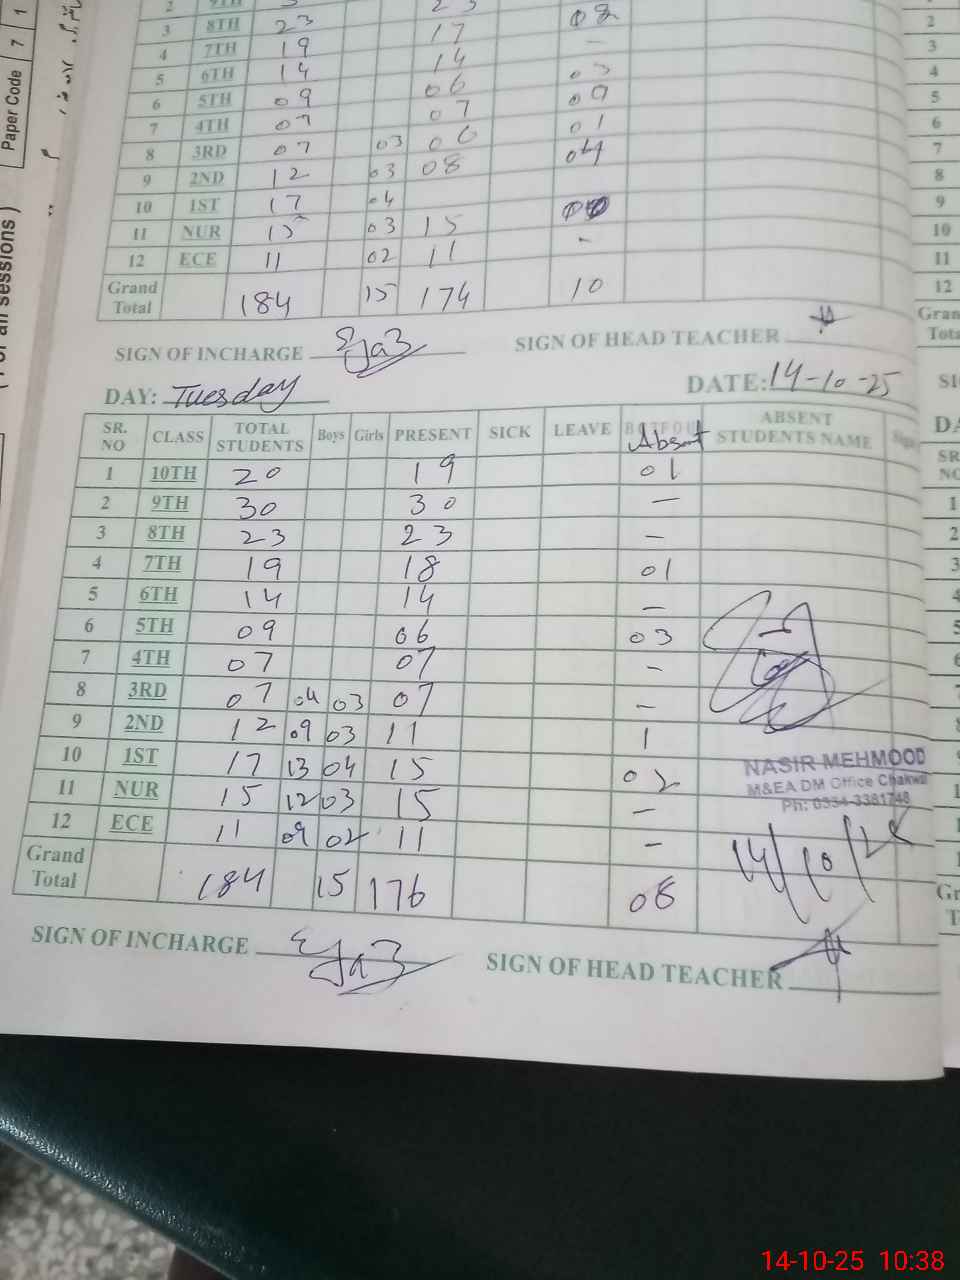 Paper Code 7 1
( For all sessions )
3 8TH 23 17 08
4 7TH 19 14 -
5 6TH 14 06 03
6 5TH 09 07 09
7 4TH 07 01
8 3RD 07 03 06 04
9 2ND 12 03 08
10 1ST 17 04
11 NUR 15 03 15
12 ECE 11 02 11 -
Grand Total 184 15 174 10
SIGN OF INCHARGE Ejaz SIGN OF HEAD TEACHER
DAY: Tuesday DATE: 14-10-25
SR. NO CLASS TOTAL STUDENTS Boys Girls PRESENT SICK LEAVE Absent ABSENT STUDENTS NAME
1 10TH 20 19 01
2 9TH 30 30 —
3 8TH 23 23 —
4 7TH 19 18 01
5 6TH 14 14 —
6 5TH 09 06 03
7 4TH 07 07 —
8 3RD 07 04 03 07 —
9 2ND 12 09 03 11 1
10 1ST 17 13 04 15 02
11 NUR 15 12 03 15 —
12 ECE 11 09 02 11 —
Grand Total 184 15 176 08
NASIR MEHMOOD
M&EA DM Office Chakwal
Ph: 0334-3381748
14/10/25
SIGN OF INCHARGE Ejaz SIGN OF HEAD TEACHER
14-10-25 10:38